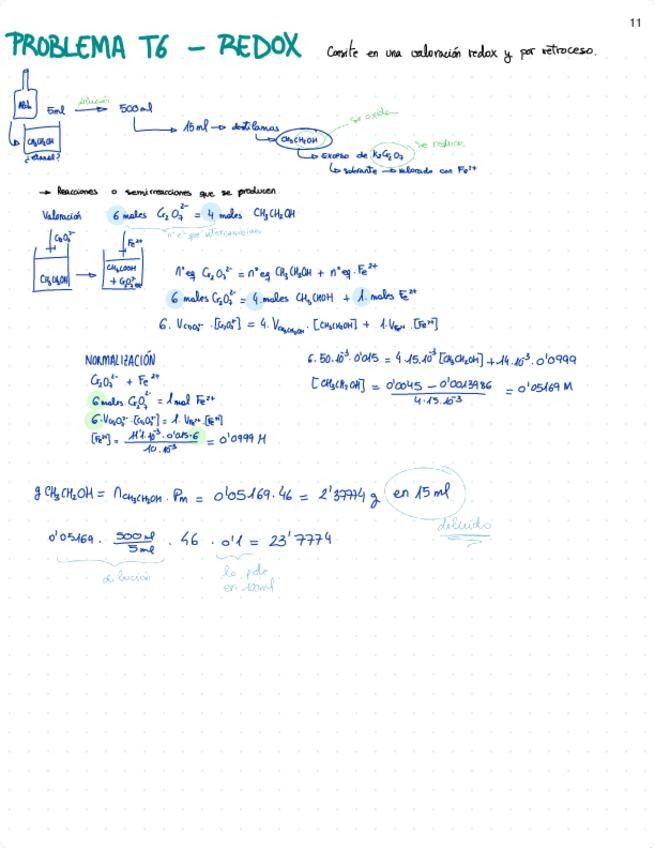 11
PROBLEMA T6 - REDOX Consite en una valoración redox y por retroceso.
5ml dilución → 500ml
→ 15ml → destilamos
se oxida
CH₃CH₂OH
CH₃CH₂OH
¿etanol?
→ exceso de K₂Cr₂O₇ se reduce
→ sobrante → valorado con Fe²⁺
→ Reacciones o semirreacciones que se producen
Valoración 6 moles Cr₂O₇²⁻ = 4 moles CH₃CH₂OH
nº e⁻ que intercambian
Cr₂O₇²⁻ Fe²⁺
CH₃CH₂OH → CH₃COOH
nº eq Cr₂O₇²⁻ = nº eq CH₃CH₂OH + nº eq. Fe²⁺
6 moles Cr₂O₇²⁻ = 4 moles CH₃CH₂OH + 1 moles Fe²⁺
6. V Cr₂O₇²⁻ · [Cr₂O₇²⁻] = 4. V CH₃CH₂OH · [CH₃CH₂OH] + 1. V Fe²⁺ · [Fe²⁺]
NORMALIZACIÓN
Cr₂O₇²⁻ + Fe²⁺
6 moles Cr₂O₇²⁻ = 1 mol Fe²⁺
6·V Cr₂O₇²⁻ · [Cr₂O₇²⁻] = 1. V Fe²⁺ · [Fe²⁺]
[Fe²⁺] = 11'1·10⁻³ · 0'015·6 / 10·10⁻³ = 0'0999 M
6·50·10⁻³ · 0'015 = 4·15·10⁻³ [CH₃CH₂OH] + 14·10⁻³ · 0'0999
[CH₃CH₂OH] = 0'0045 - 0'0013986 / 4·15·10⁻³ = 0'05169 M
g CH₃CH₂OH = n CH₃CH₂OH · Pm = 0'05169·46 = 2'37774 g en 15 ml
diluido
0'05169 · 500ml / 5ml · 46 · 0'1 = 23'7774
dilución lo pide
en 100ml